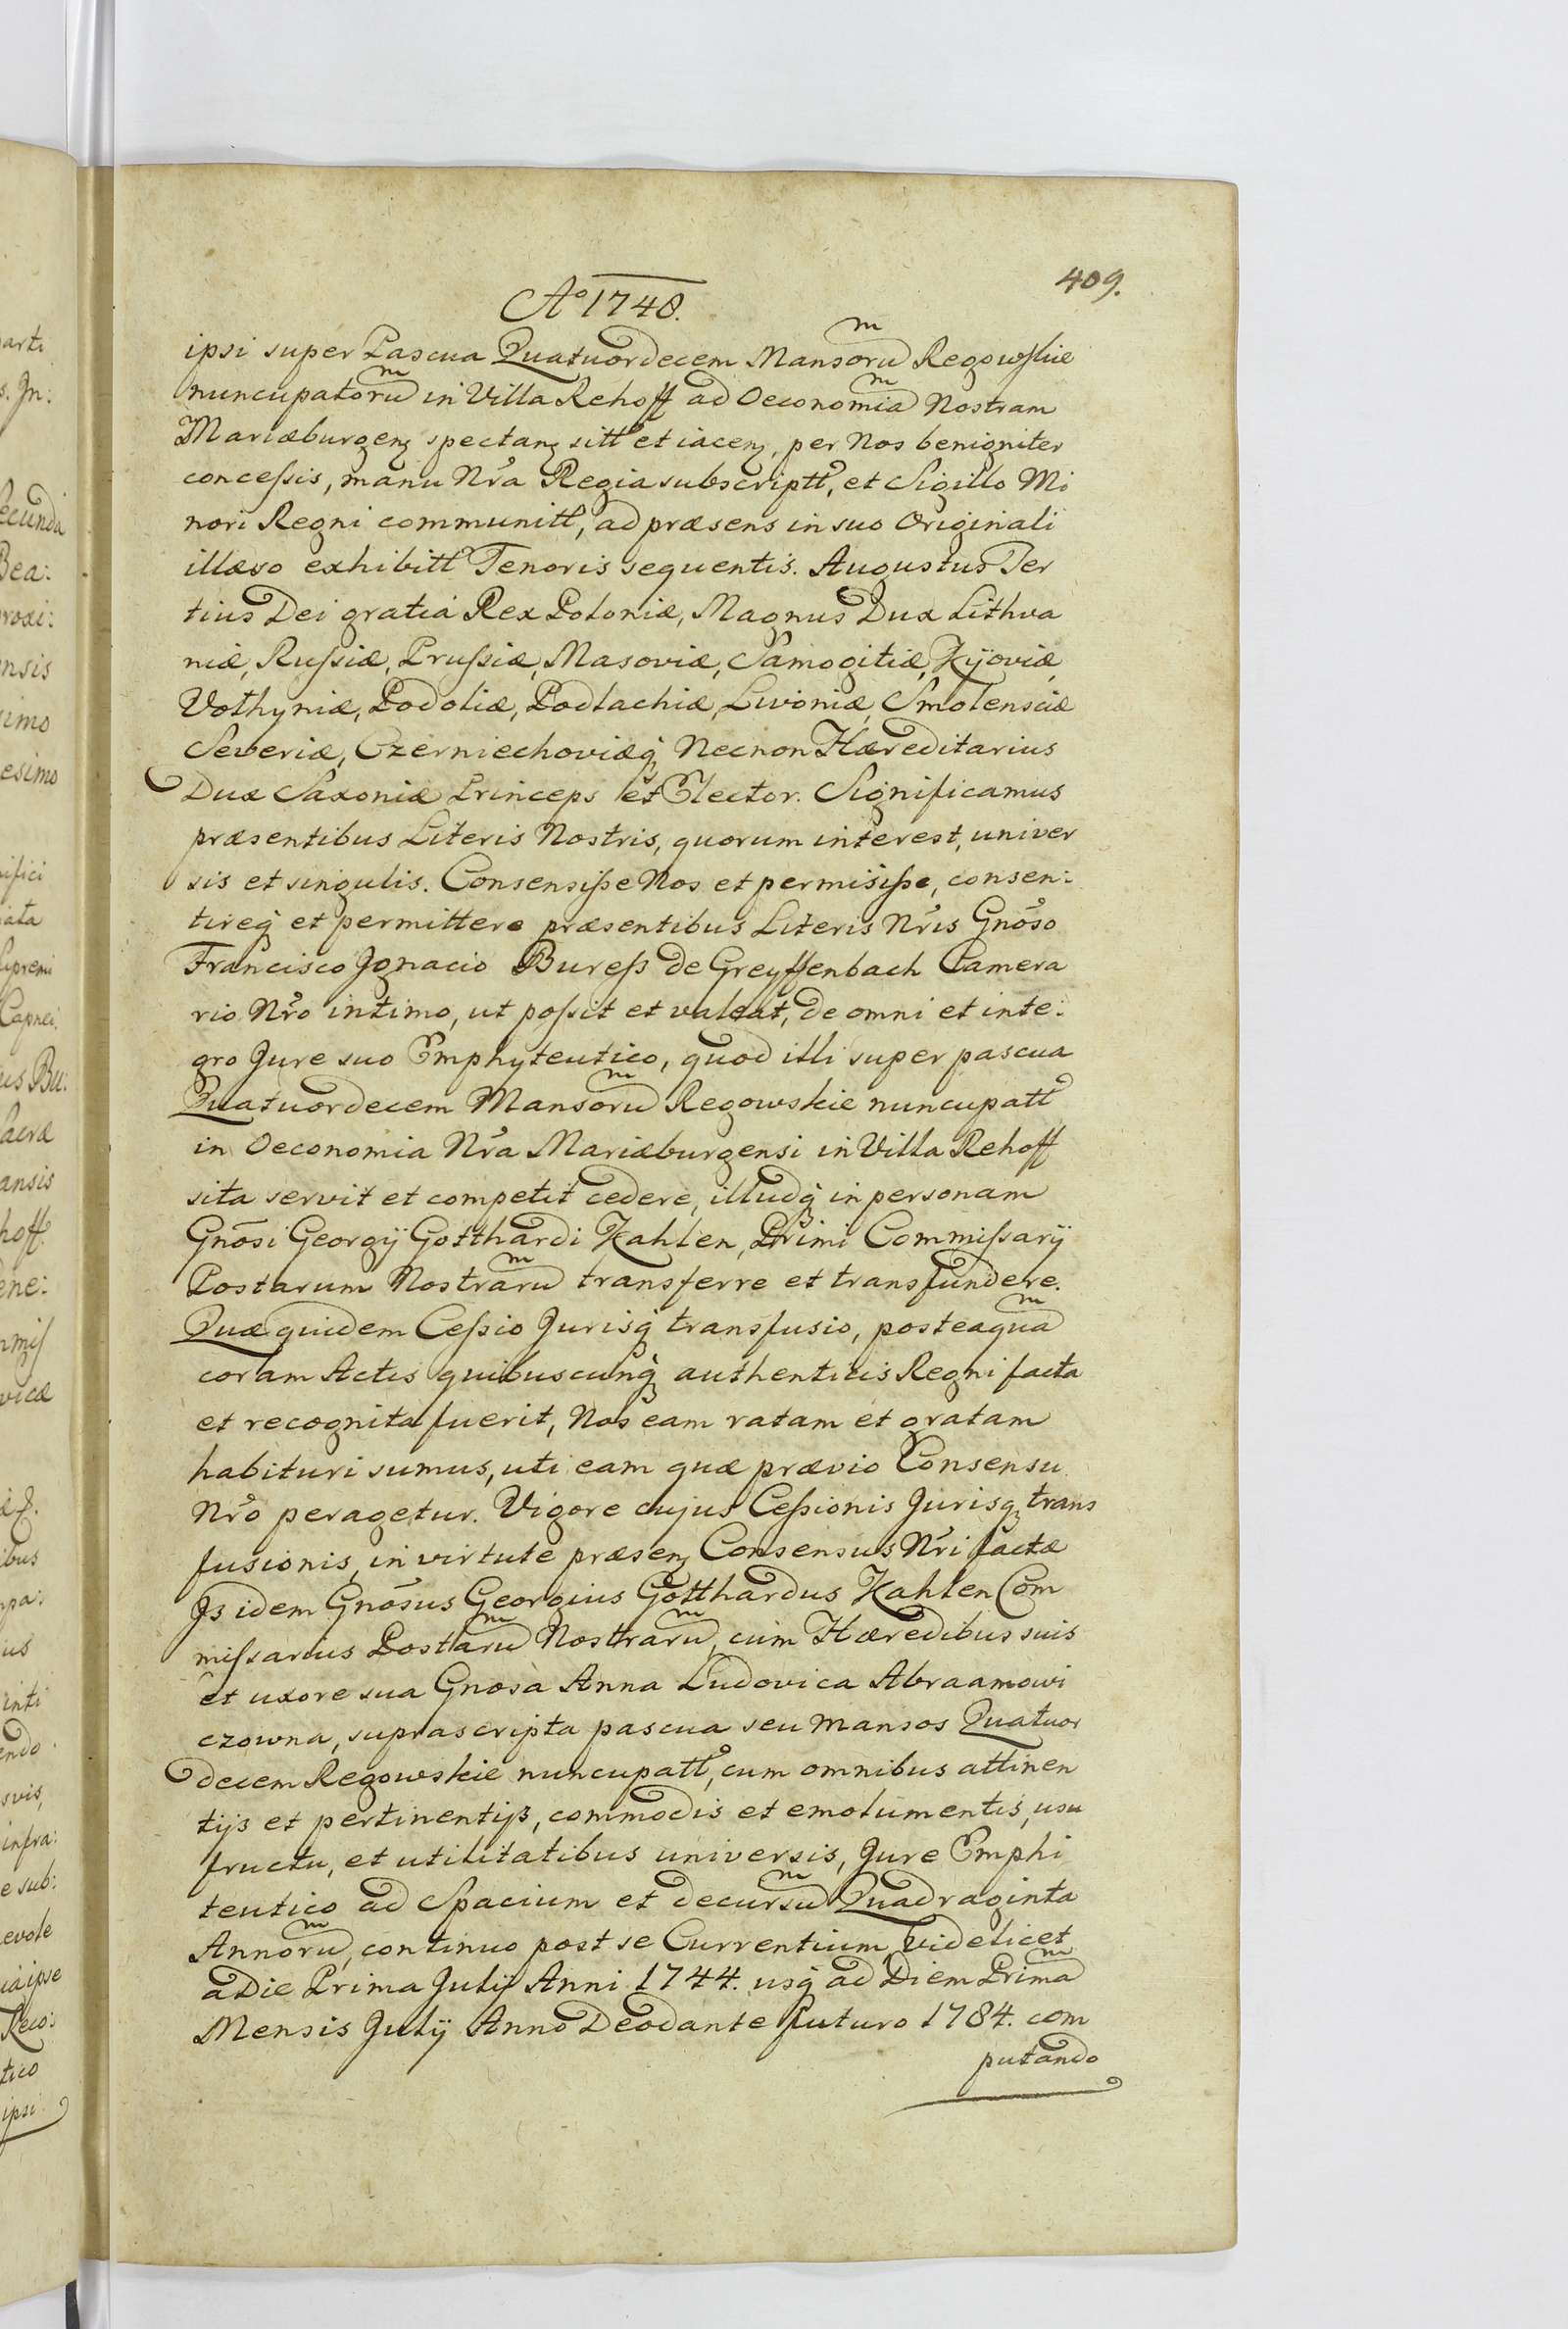 409.
Aº 1748.
ipsi super Pascua Quatuordecem Mansoru͠m Regowskie
nuncupatoru͠m in Villa Rehoff ad Oeconomia͠m Nostram
Mariæburgenʒ spectanʒ sitt͠ et iacenʒ, per Nos benigniter
concessis, manu Nr̃a Regia subscriptt͠, et Sigillo Mi
nori Regni communitt͠, ad præsens in suo Originali
illæso exhibitt͠ Tenoris sequentis. Augustus Ter
tius Dei gratia Rex Poloniæ, Magnus Dux Lithva
niæ, Russiæ, Prussiæ, Masoviæ, Samogitiæ, Kyoviæ,
Volhyniæ, Podoliæ, Podlachiæ, Livoniæ, Smolensciæ
Severiæ, Czerniechoviæq̃ Necnon Hæreditarius
Dux Saxoniæ Princeps et Elector. Significamus
præsentibus Literis Nostris, quorum interest, univer
sis et singulis. Consensisse Nos et permisisse, consen:
tireq̃ et permittere præsentibus Literis Nr̃is Gnõso
Francisco Jgnacio Buress de Greyffenbach Camera
rio Nr̃o intimo, ut possit et valeat, de omni et inte:
gro Jure suo Emphyteutico, quod illi super pascua
Quatuordecem Mansoru͠m Regowskie nuncupatt͠
in Oeconomia Nr̃a Mariæburgensi in Villa Rehoff
sita servit et competit cedere, illudq̃ in personam
Gnõsi Georgÿ Gotthardi Kahlen, Primi Commissarÿ
Postarum Nostraru͠m transferre et transfundere.
Quæ quidem Cessio Jurisq̃ transfusio, posteaqua͠m
coram Actis quibuscunq̃ authenticis Regni facta
et recognita fuerit, Nos eam ratam et gratam
habituri sumus, uti eam quæ prævio Consensu
Nr̃o peragetur. Vigore cujus Cessionis Jurisq̃ trans
fusionis, in virtute præsenʒ Consensus Nr̃i factæ
Js idem Gnõsus Georgius Gotthardus Kahlen Com
missarius Postaru͠m Nostraru͠m, cum Hæredibus suis
et uxore sua Gnosa Anna Ludovica Abraamowi
czowna, suprascripta pascua seu mansos Quatuor
decem Regowskie nuncupatt͠, cum omnibus attinen
tÿs et pertinentÿs, commodis et emolumentis, usu
fructu, et utilitatibus universis, Jure Emphi
teutico ad Spacium et decursu͠m Quadraginta
Annoru͠m, continuo post se Currentium, videlicet
a Die Prima Julÿ Anni 1744. usq̃ ad Diem Prima͠m
Mensis Julÿ Anno Deo dante futuro 1784. com
putando